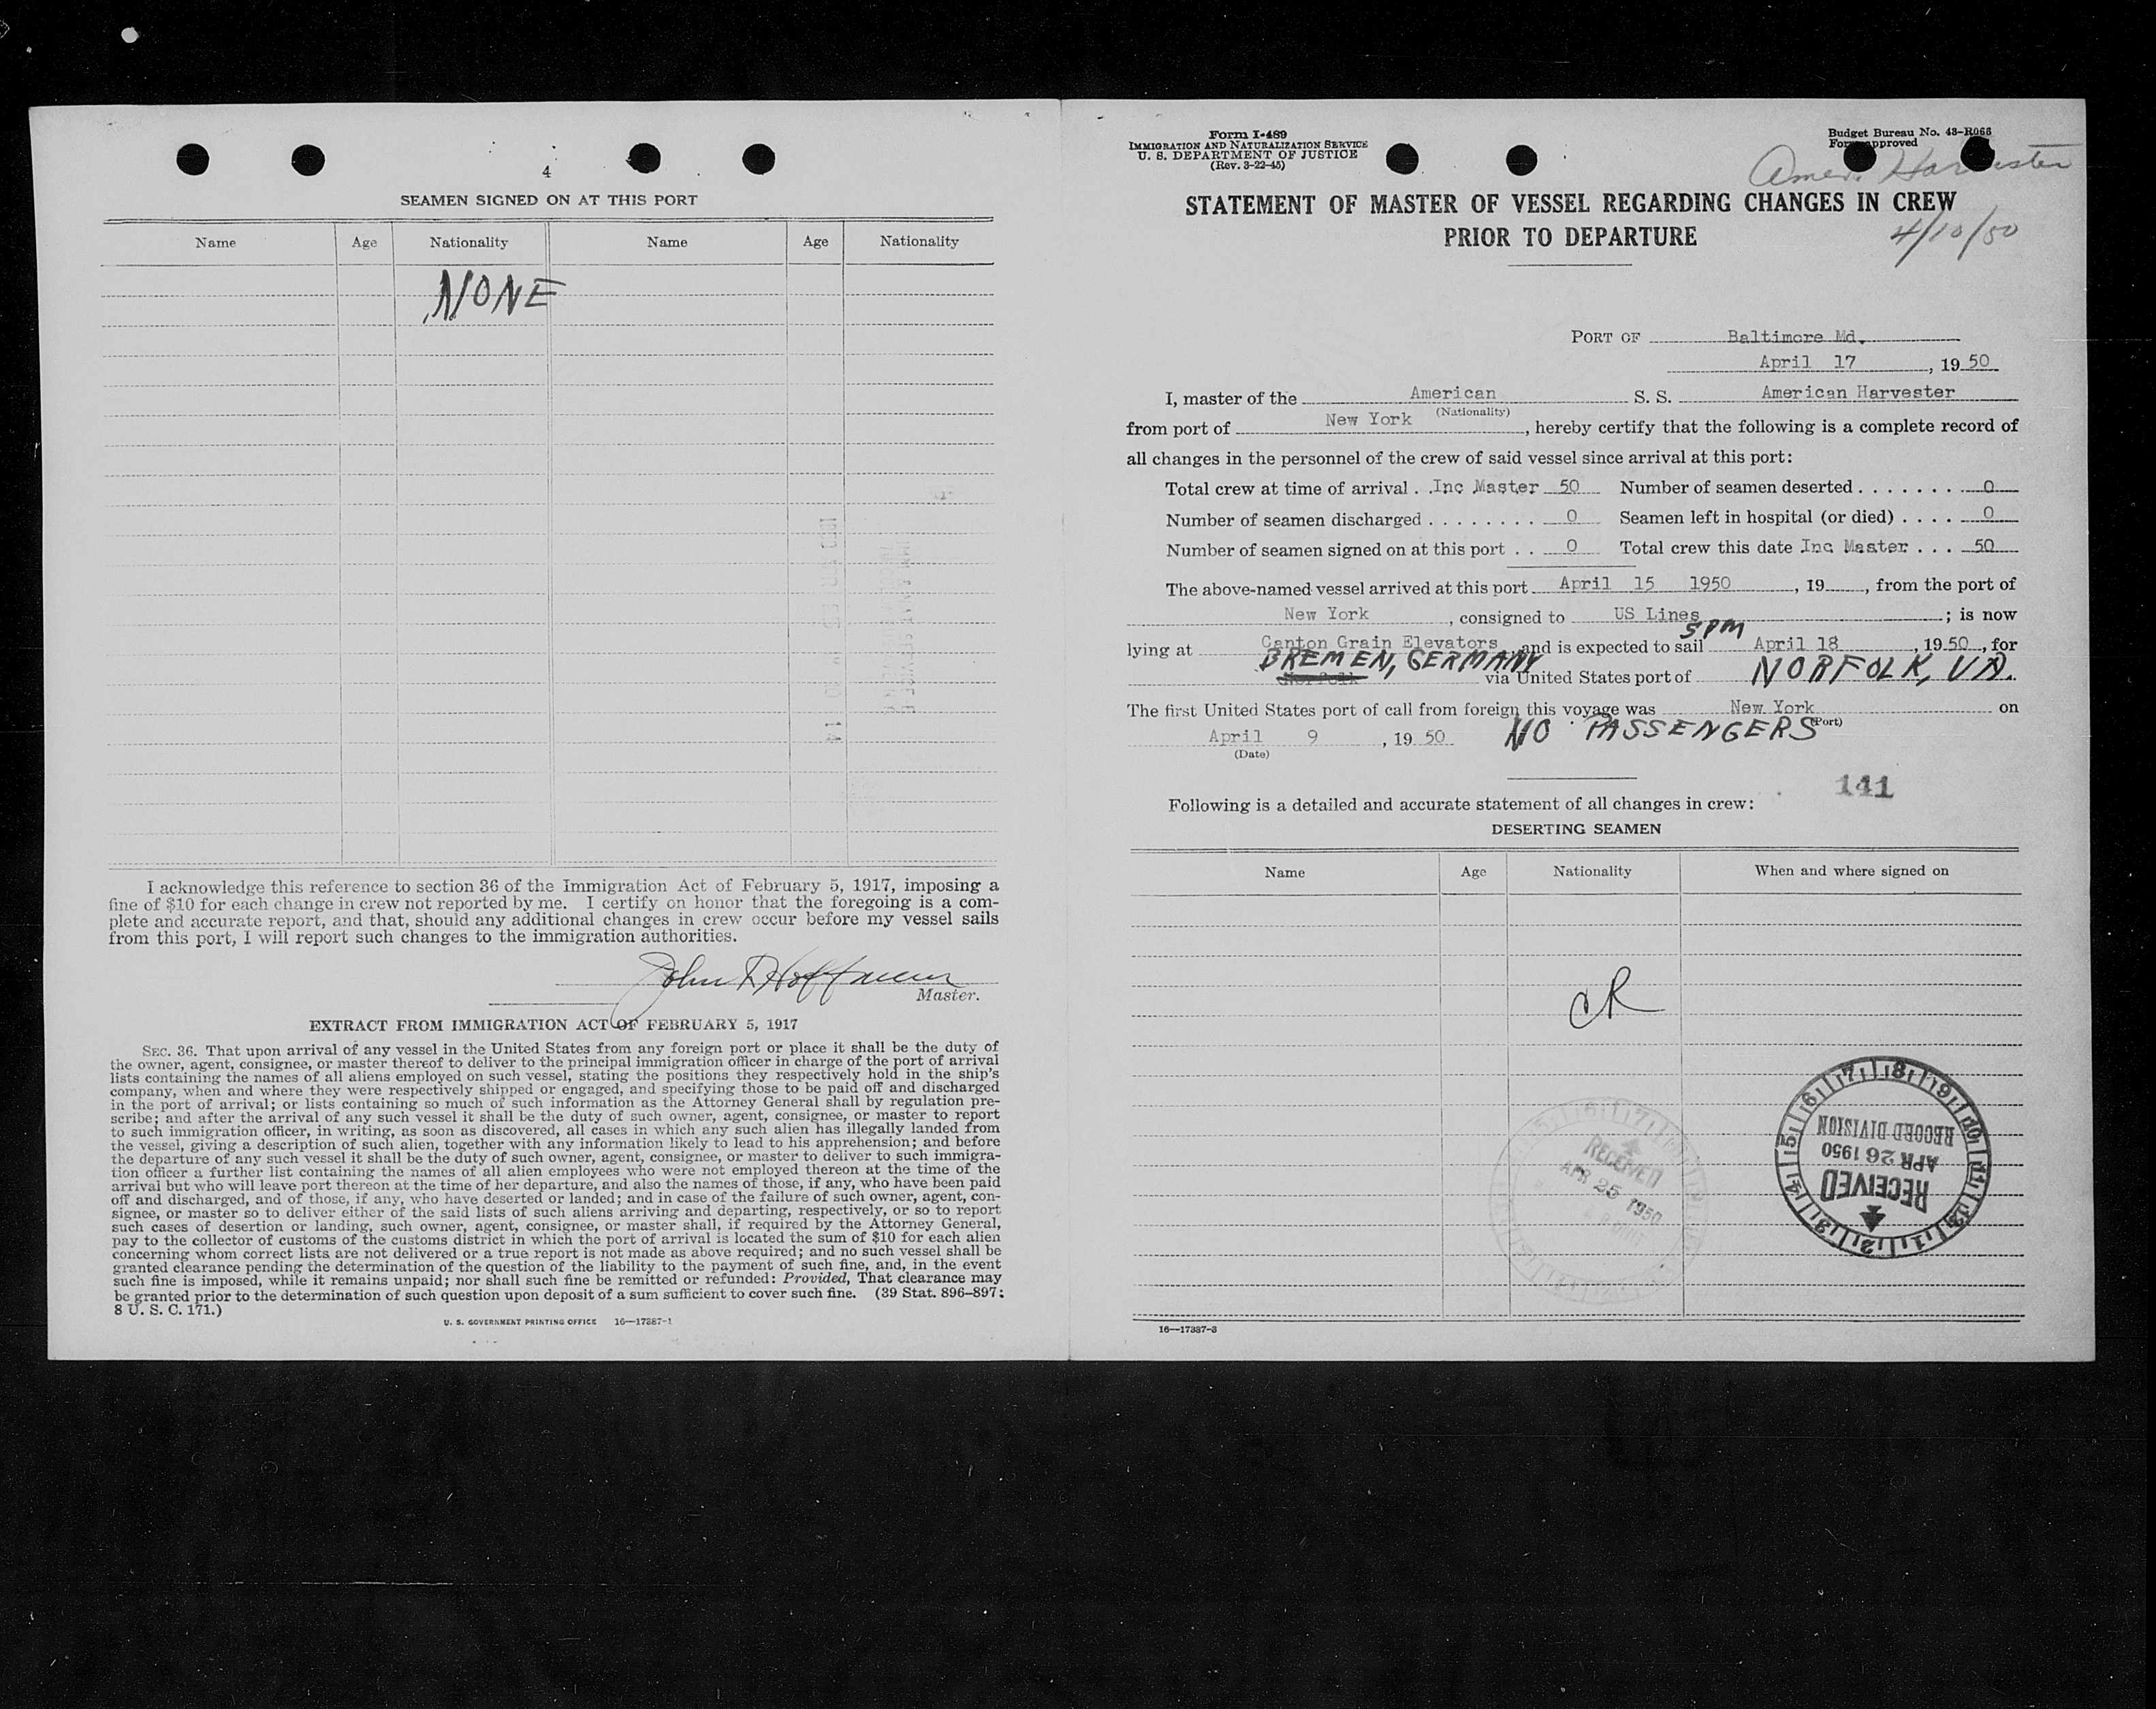 4
SEAMEN SIGNED ON AT THIS PORT
Name Age Nationality Name Age Nationality
NONE
I acknowledge this reference to section 36 of the Immigration Act of February 5, 1917, imposing a
fine of $10 for each change in crew not reported by me. I certify on honor that the foregoing is a com-
plete and accurate report, and that, should any additional changes in crew occur before my vessel sails
from this port, I will report such changes to the immigration authorities.
John Hoffman
Master.
EXTRACT FROM IMMIGRATION ACT OF FEBRUARY 5, 1917
SEC. 36. That upon arrival of any vessel in the United States from any foreign port or place it shall be the duty of
the owner, agent, consignee, or master thereof to deliver to the principal immigration officer in charge of the port of arrival
lists containing the names of all aliens employed on such vessel, stating the positions they respectively hold in the ship's
company, when and where they were respectively shipped or engaged, and specifying those to be paid off and discharged
in the port of arrival; or lists containing so much of such information as the Attorney General shall by regulation pre-
scribe; and after the arrival of any such vessel it shall be the duty of such owner, agent, consignee, or master to report
to such immigration officer, in writing, as soon as discovered, all cases in which any such alien has illegally landed from
the vessel, giving a description of such alien, together with any information likely to lead to his apprehension; and before
the departure of any such vessel it shall be the duty of such owner, agent, consignee, or master to deliver to such immigra-
tion officer a further list containing the names of all alien employees who were not employed thereon at the time of the
arrival but who will leave port thereon at the time of her departure, and also the names of those, if any, who have been paid
off and discharged, and of those, if any, who have deserted or landed; and in case of the failure of such owner, agent, con-
signee, or master so to deliver either of the said lists of such aliens arriving and departing, respectively, or so to report
such cases of desertion or landing, such owner, agent, consignee, or master shall, if required by the Attorney General,
pay to the collector of customs of the customs district in which the port of arrival is located the sum of $10 for each alien
concerning whom correct lists are not delivered or a true report is not made as above required; and no such vessel shall be
granted clearance pending the determination of the question of the liability to the payment of such fine, and, in the event
such fine is imposed, while it remains unpaid; nor shall such fine be remitted or refunded: Provided, That clearance may
be granted prior to the determination of such question upon deposit of a sum sufficient to cover such fine. (39 Stat. 896–897;
8 U. S. C. 171.)
U. S. GOVERNMENT PRINTING OFFICE 16—17387-1
Form I-489
IMMIGRATION AND NATURALIZATION SERVICE
U. S. DEPARTMENT OF JUSTICE
(Rev. 3-22-45)
Budget Bureau No. 43-R066
Form approved
Amer. Harvester
STATEMENT OF MASTER OF VESSEL REGARDING CHANGES IN CREW
PRIOR TO DEPARTURE
4/10/50
PORT OF Baltimore Md.
April 17, 1950
I, master of the American S. S. American Harvester
(Nationality)
from port of New York, hereby certify that the following is a complete record of
all changes in the personnel of the crew of said vessel since arrival at this port:
Total crew at time of arrival . . Inc Master 50 Number of seamen deserted . . . . . . . 0
Number of seamen discharged . . . . . . . . 0 Seamen left in hospital (or died) . . . . 0
Number of seamen signed on at this port . . 0 Total crew this date Inc Master . . . 50
The above-named vessel arrived at this port April 15 1950, 19, from the port of
New York, consigned to US Lines; is now
lying at Canton Grain Elevators and is expected to sail 5 PM April 18, 1950, for
BREMEN, GERMANY Norfolk via United States port of NORFOLK, VA.
The first United States port of call from foreign this voyage was New York on
(Port)
April 9, 1950 NO PASSENGERS
(Date)
141
Following is a detailed and accurate statement of all changes in crew:
DESERTING SEAMEN
Name Age Nationality When and where signed on
RECEIVED
APR 25 1950
RECEIVED
APR 26 1950
RECORD DIVISION
16—17387-3